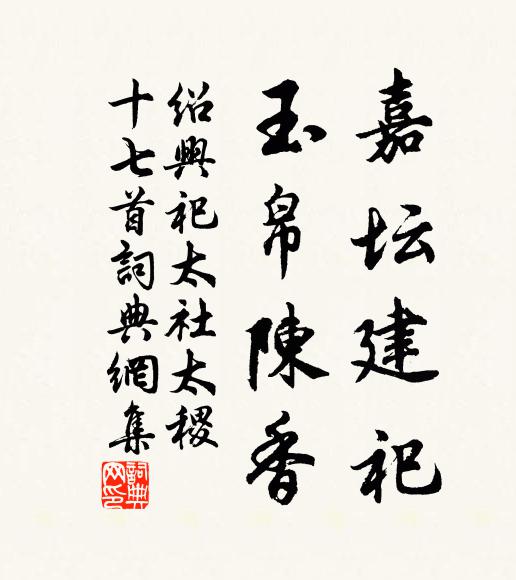 嘉坛建祀
玉帛陳香
绍興祀太社太稷
十七首詞典網集
詞典网印